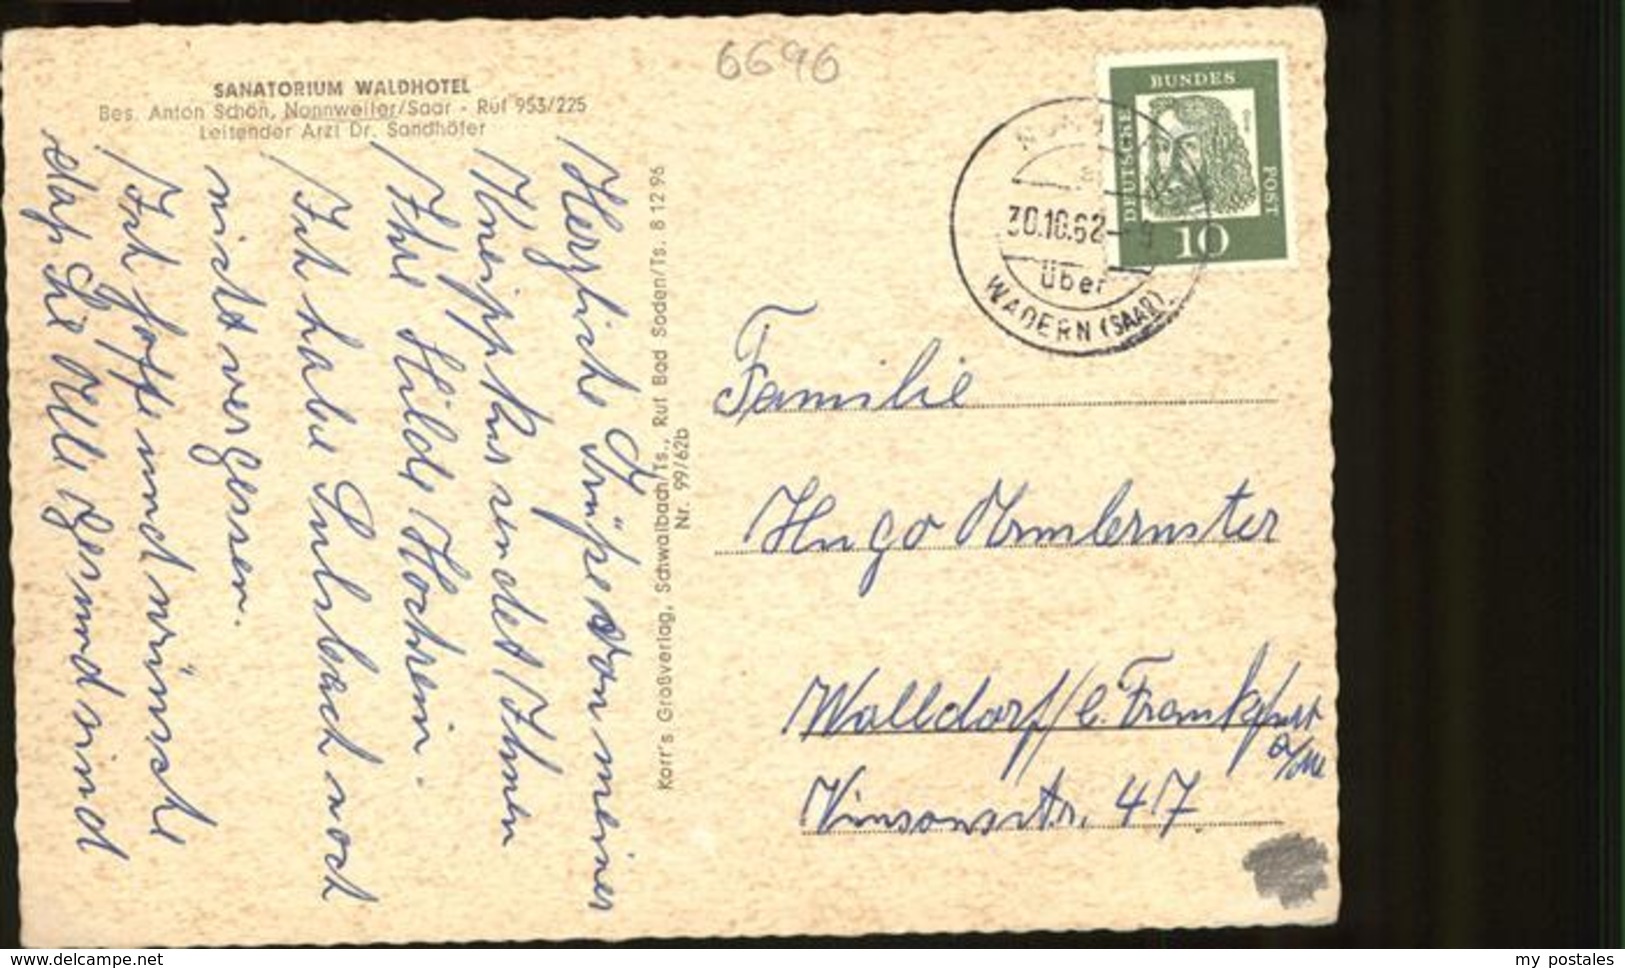 6696
SANATORIUM WALDHOTEL
Bes. Anton Schön, Nonnweiler/Saar - Ruf 953/225
Leitender Arzt Dr. Sandhöfer
Herzliche Grüße von meiner
Kneippkur sendet Ihnen
Ihre Hilde Hochrein.
Ich habe Sulzbach noch
nicht vergessen.
Ich hoffe und wünsche
daß Sie Alle gesund sind
Korr's Großverlag, Schwalbach/Ts., Ruf Bad Soden/Ts. 8 12 96
Nr. 99/62b
30.10.62
über
WADERN (SAAR)
DEUTSCHE
BUNDES
POST
10
Familie
Hugo
Walldorf/b. Frankfurt
a/M
47
www.delcampe.net
my postales